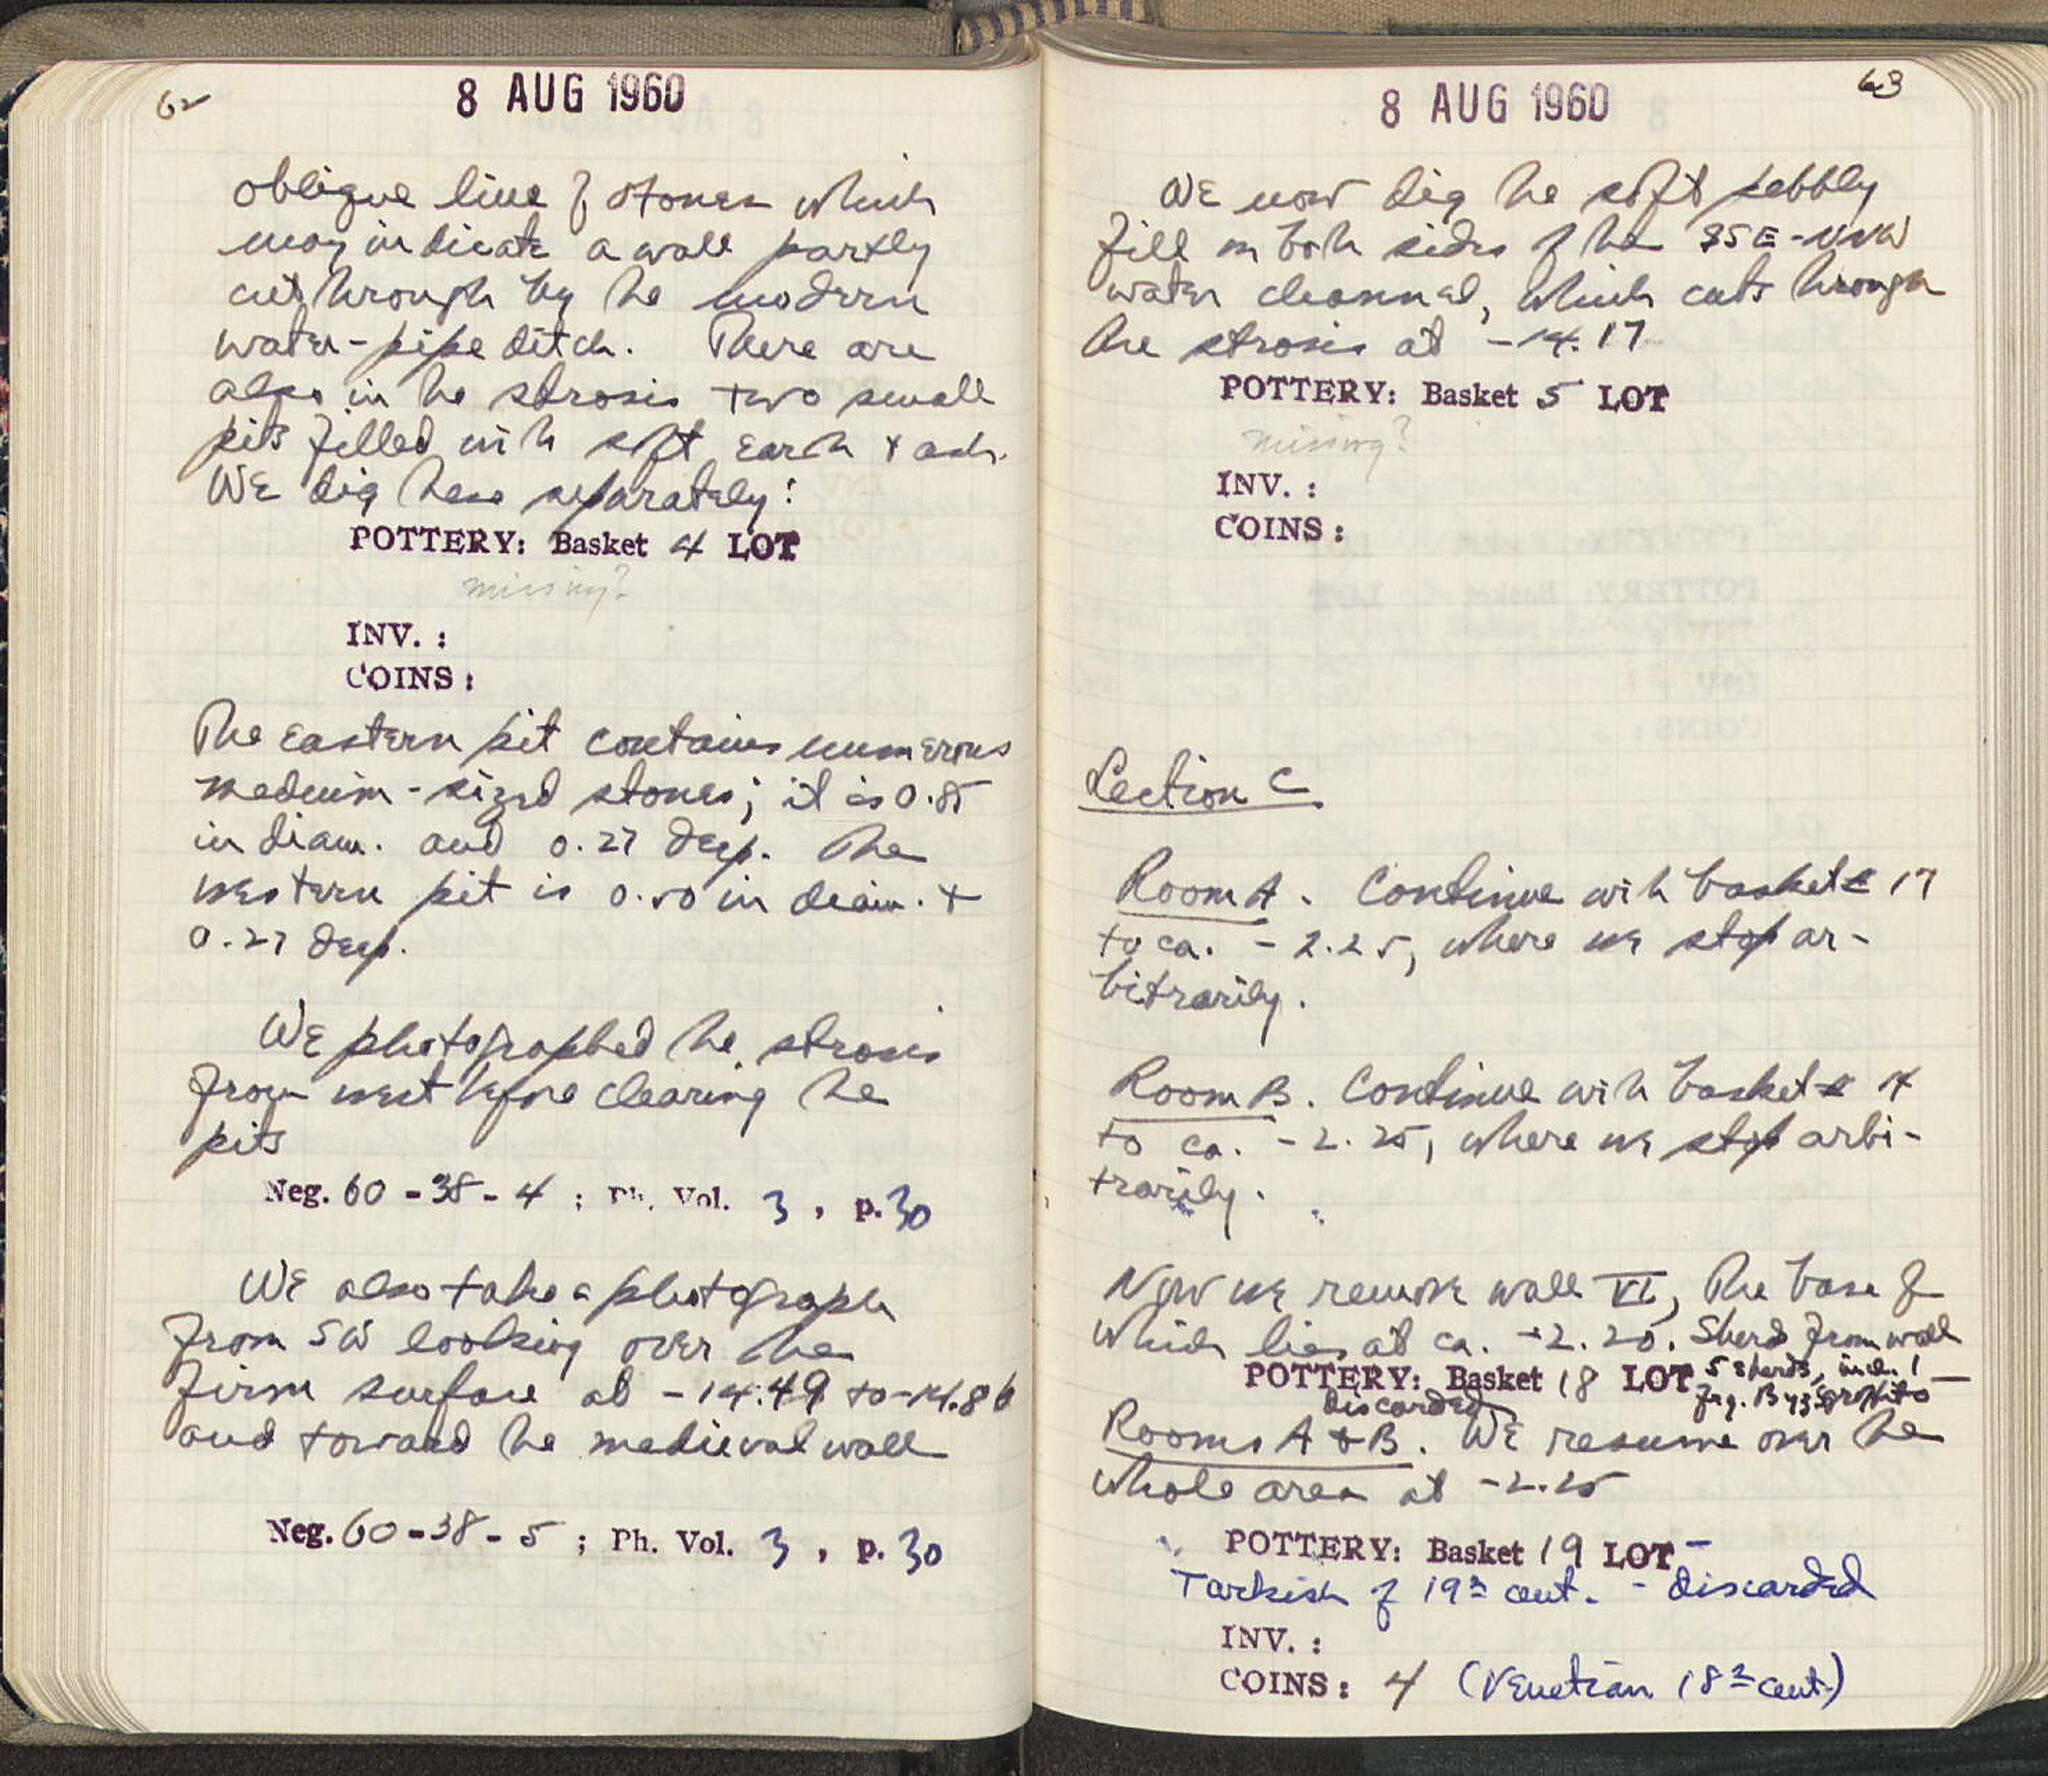 62
8 AUG 1960
oblique line of stones which
may indicate a wall partly
cut through by the modern
water-pipe ditch. There are
also in the strosis two small
pits filled with soft earth + ash.
We dig these separately:
POTTERY: Basket 4 LOT
missing?
INV. :
COINS :
The eastern pit contains numerous
medium-sized stones; it is 0.85
in diam. and 0.27 deep. The
western pit is 0.50 in diam. +
0.27 deep.
We photographed the strosis
from west before clearing the
pits
Neg. 60-38-4 ; Ph. Vol. 3 , p. 30
We also take a photograph
from SW looking over the
firm surface at -14.49 to -14.86
and toward the medieval wall
Neg. 60-38-5 ; Ph. Vol. 3 , p. 30
63
8 AUG 1960
We now dig the soft pebbly
fill on both sides of the SSE-NNW
water channel, which cuts through
the strosis at -14.17
POTTERY: Basket 5 LOT
missing?
INV. :
COINS :
Section C
Room A. Continue with basket 17
to ca. -2.25, where we stop ar-
bitrarily.
Room B. Continue with basket 14
to ca. -2.25, where we stop arbi-
trarily.
Now we remove wall VI, the base of
which lies at ca. -2.20. Sherds from wall
POTTERY: Basket 18 LOT 5 sherds, incl. 1
frg. Byz. sgraffito
discarded
Rooms A + B. We resume over the
whole area at -2.25
POTTERY: Basket 19 LOT -
Turkish of 19th cent. - discarded
INV. :
COINS : 4 (Venetian 18th cent.)